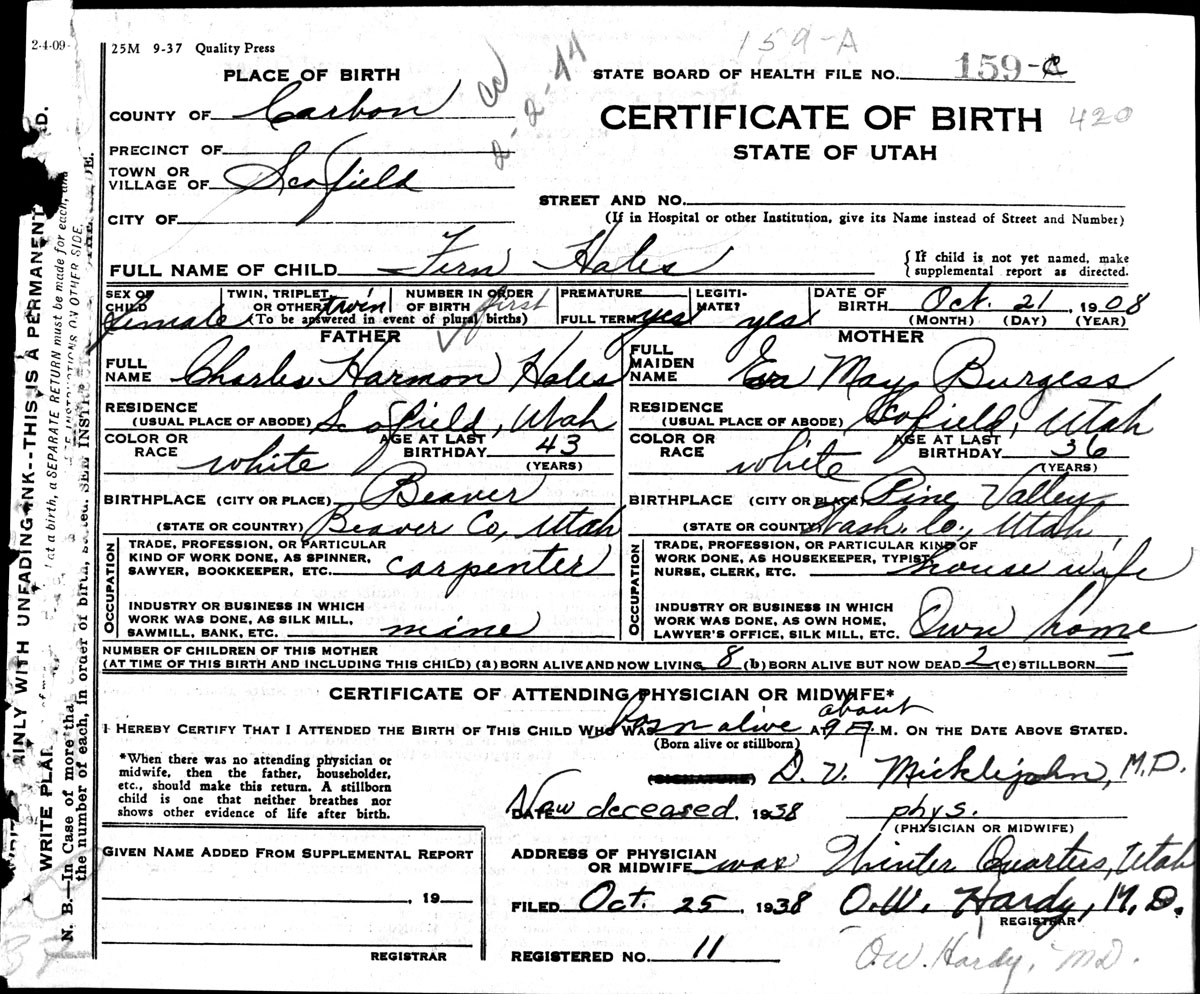 2-4-09-
25M 9-37 Quality Press
159-A
PLACE OF BIRTH
STATE BOARD OF HEALTH FILE NO. 159-C
COUNTY OF Carbon
cc 2-2-44
CERTIFICATE OF BIRTH 420
STATE OF UTAH
PRECINCT OF
TOWN OR VILLAGE OF Scofield
STREET AND NO.
CITY OF
(If in Hospital or other Institution, give its Name instead of Street and Number)
FULL NAME OF CHILD Fern Hales
{ If child is not yet named, make supplemental report as directed.
SEX OF CHILD female
TWIN, TRIPLET, OR OTHER twin
NUMBER IN ORDER OF BIRTH first
(To be answered in event of plural births)
PREMATURE
FULL TERM yes
LEGITIMATE? yes
DATE OF BIRTH Oct. 21, 1908
(MONTH) (DAY) (YEAR)
FATHER
FULL NAME Charles Harmon Hales
RESIDENCE (USUAL PLACE OF ABODE) Scofield, Utah
COLOR OR RACE white
AGE AT LAST BIRTHDAY 43 (YEARS)
BIRTHPLACE (CITY OR PLACE) Beaver
(STATE OR COUNTRY) Beaver Co, Utah
OCCUPATION
TRADE, PROFESSION, OR PARTICULAR
KIND OF WORK DONE, AS SPINNER,
SAWYER, BOOKKEEPER, ETC. carpenter
INDUSTRY OR BUSINESS IN WHICH
WORK WAS DONE, AS SILK MILL,
SAWMILL, BANK, ETC. mine
MOTHER
FULL MAIDEN NAME May Burgess
RESIDENCE (USUAL PLACE OF ABODE) Scofield, Utah
COLOR OR RACE white
AGE AT LAST BIRTHDAY 36 (YEARS)
BIRTHPLACE (CITY OR PLACE) Pine Valley
(STATE OR COUNTY) Wash. Co., Utah
OCCUPATION
TRADE, PROFESSION, OR PARTICULAR KIND OF
WORK DONE, AS HOUSEKEEPER, TYPIST,
NURSE, CLERK, ETC. housewife
INDUSTRY OR BUSINESS IN WHICH
WORK WAS DONE, AS OWN HOME,
LAWYER'S OFFICE, SILK MILL, ETC. Own home
NUMBER OF CHILDREN OF THIS MOTHER
(AT TIME OF THIS BIRTH AND INCLUDING THIS CHILD) (a) BORN ALIVE AND NOW LIVING 8 (b) BORN ALIVE BUT NOW DEAD 2 (c) STILLBORN –
CERTIFICATE OF ATTENDING PHYSICIAN OR MIDWIFE*
I HEREBY CERTIFY THAT I ATTENDED THE BIRTH OF THIS CHILD WHO WAS born alive AT about 9 P. M. ON THE DATE ABOVE STATED.
(Born alive or stillborn)
*When there was no attending physician or
midwife, then the father, householder,
etc., should make this return. A stillborn
child is one that neither breathes nor
shows other evidence of life after birth.
(SIGNATURE) D. V. Micklijohn, M.D.
DATE Now deceased, 1938 phys.
(PHYSICIAN OR MIDWIFE)
GIVEN NAME ADDED FROM SUPPLEMENTAL REPORT
, 19
REGISTRAR
ADDRESS OF PHYSICIAN OR MIDWIFE was Winter Quarters, Utah
FILED Oct. 25, 1938 O.W. Hardy, M.D.
REGISTRAR
REGISTERED NO. 11
O.W. Hardy, MD.
WRITE PLAINLY WITH UNFADING INK--THIS IS A PERMANENT
N. B.—In Case of more tha
at a birth, a SEPARATE RETURN must be made for each, and
the number of each, in order of birth, stated. SEE INSTRUCTIONS ON OTHER SIDE.